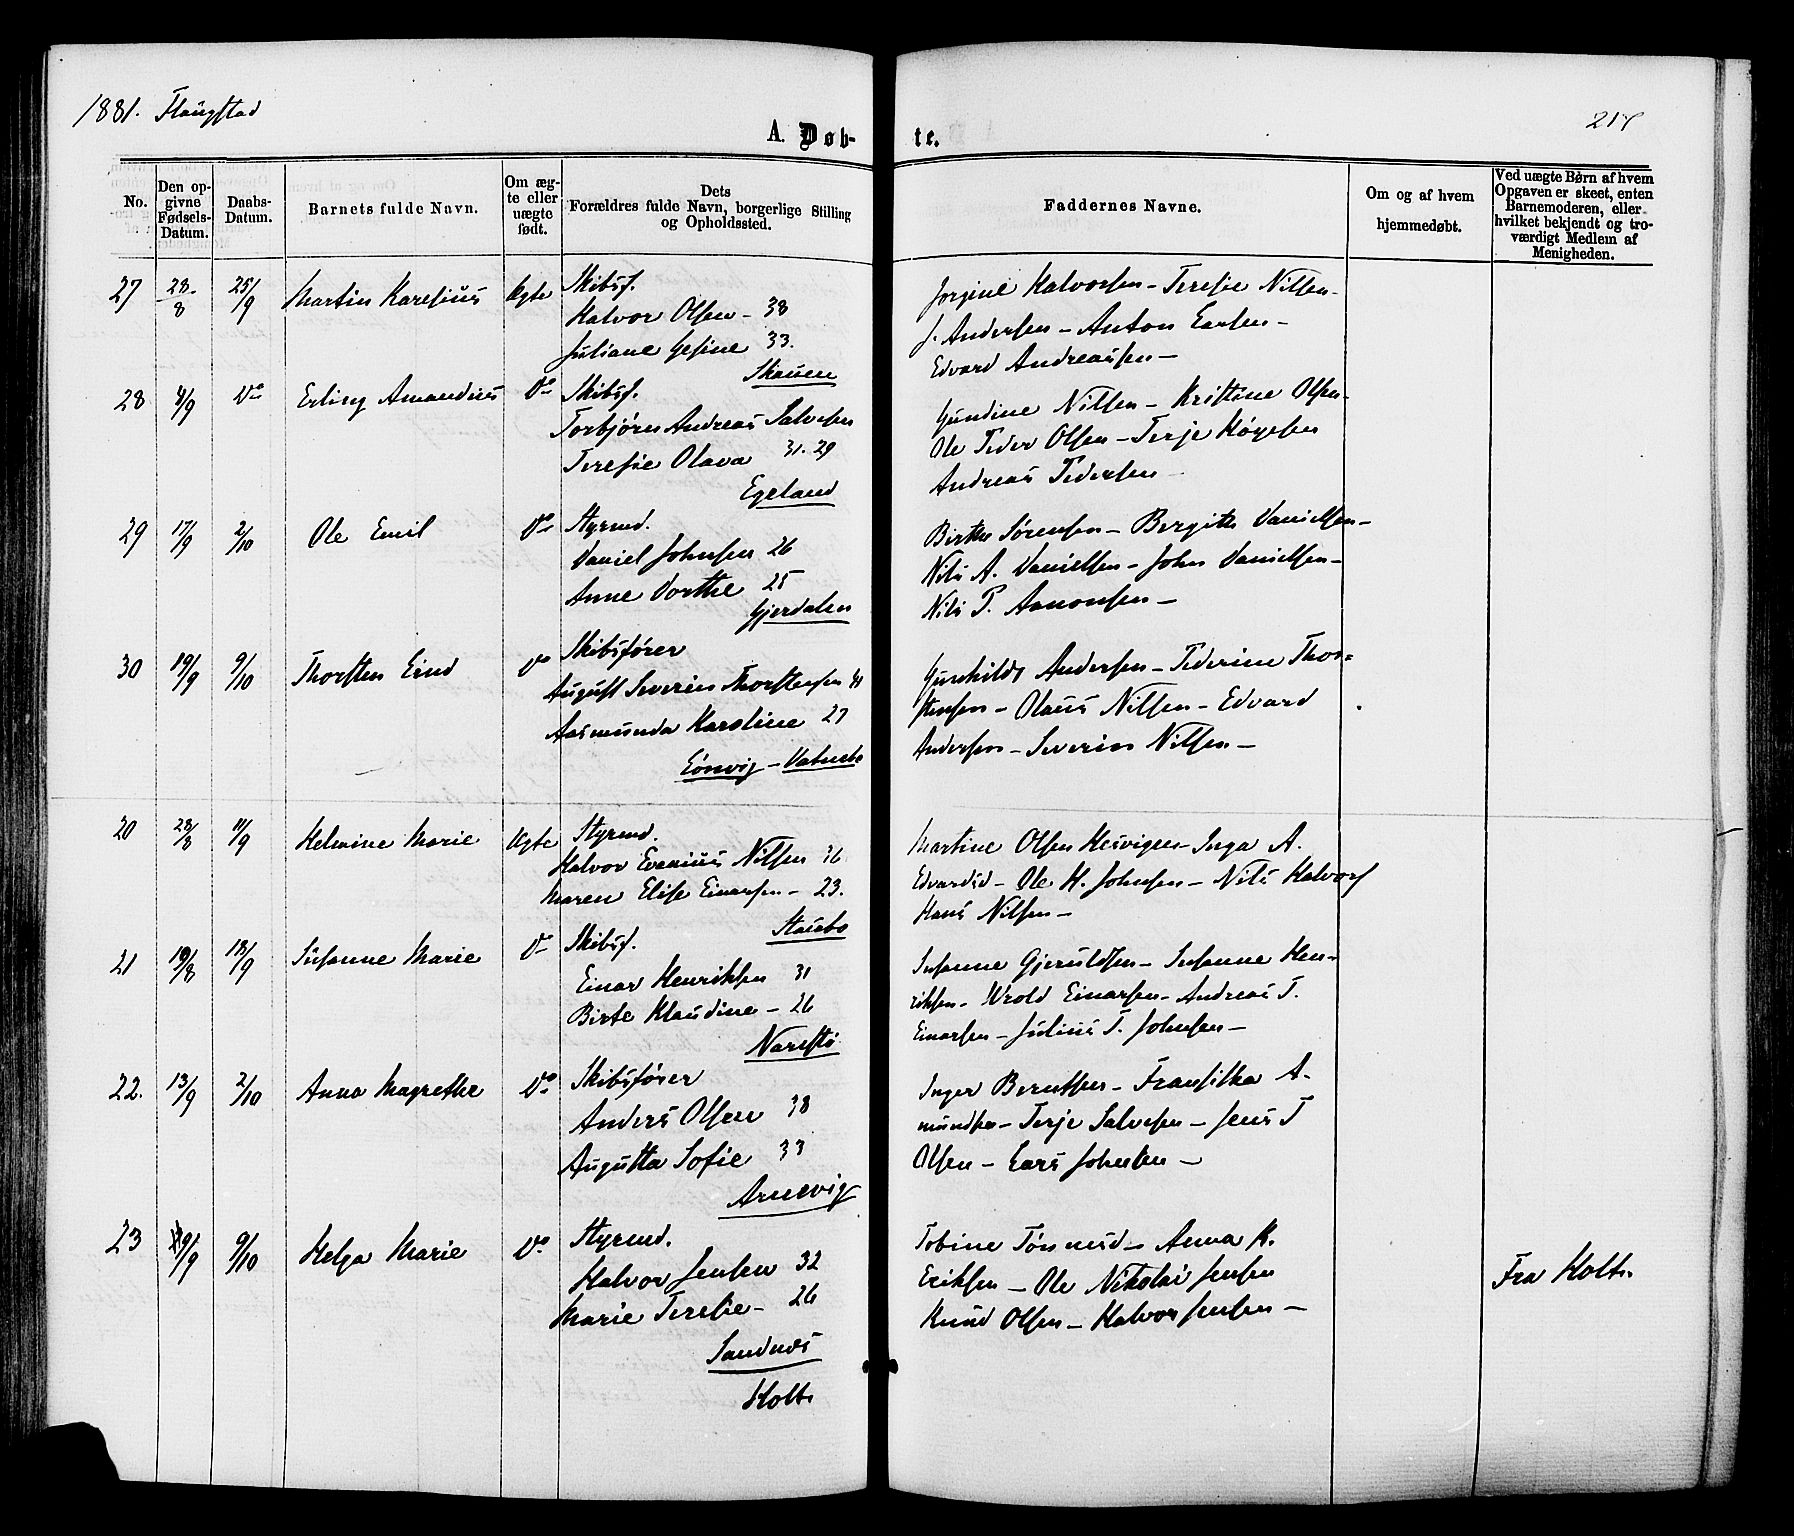 1881. Flaugstad
A. Døb-
te.
No.
Den opgivne Fødsels-Datum.
Daabs-Datum.
Barnets fulde Navn.
Om ægte eller uægte født.
Dets Forældres fulde Navn, borgerlige Stilling og Opholdssted.
Faddernes Navne.
Om og af hvem hjemmedøbt.
Ved uægte Børn af hvem Opgaven er skeet, enten Barnemoderen, eller hvilket bekjendt og troværdigt Medlem af Menigheden.
27 28/8 25/9 Martin Karelius Ægte Skibsf.
Halvor Olsen - 38
Juliane Gesine 33.
Skauen
Jorgine Halvorsen - Teresie Nilsen -
J. Andersen - Anton Larsen -
Edvard Andreassen -
28 4/9 Do Erling Amandius Do Skibsf.
Torbjørn Andreas Salvesen
Teresie Olava 31. 29
Egeland
Gundine Nilsen - Kristine Olsen -
Ole Peder Olsen - Terje
Andreas Pedersen -
29 17/9 2/10 Ole Emil Do Styrmd.
Daniel Johnsen 26
Anne Dorthe 25
Gjerdalen
Birthe Sørensen - Bergithe Danielsen -
Nils A. Danielsen - John Danielsen -
Nils P. Aanonsen -
30 19/9 9/10 Thorsten Do Skibsfører
August Severin Thorstensen
Aasmunda Karoline 27
Lónvig - Vatnebo
Gunhilda Andersen - Pederine Thor=
stensen - Olaus Nilsen - Edvard
Andersen - Severin Nilsen -
20 28/8 11/9 Helmine Marie Ægte Styrmd.
Halvor Evenius Nilsen 26
Maren Elise Einarsen - 23.
Staubo
Martine Olsen Hesvigen - Inga A.
Edvardsd - Ole H. Johnsen - Nils Halvors
Hans Nilsen -
21 19/8 18/9 Susanne Marie Do Skibsf.
Einar Henriksen 31
Birte Klaudine - 26
Narestø
Susanne Gjeruldsen - Susanne Hen-
riksen - Wrold Einarsen - Andreas T.
Einarsen - Julius T. Johnsen -
22. 13/9 2/10 Anna Magrethe Do Skibsfører
Anders Olsen 38
Augusta Sofie 33
Arnevig
Inger Berntsen - Fransiska A.
mundsen - Terje Salvesen - Jens T
Olsen - Lars Johnsen -
23 9/9 9/10 Helga Marie Do Styrmd.
Halvor Jensen 32
Marie Teresie - 26
Sandnæs
Holt.
Tobine Tønnesd - Anna K.
Eriksen - Ole Nikolai Jensen
Knud Olsen - Halvor Jensen -
Fra Holt.